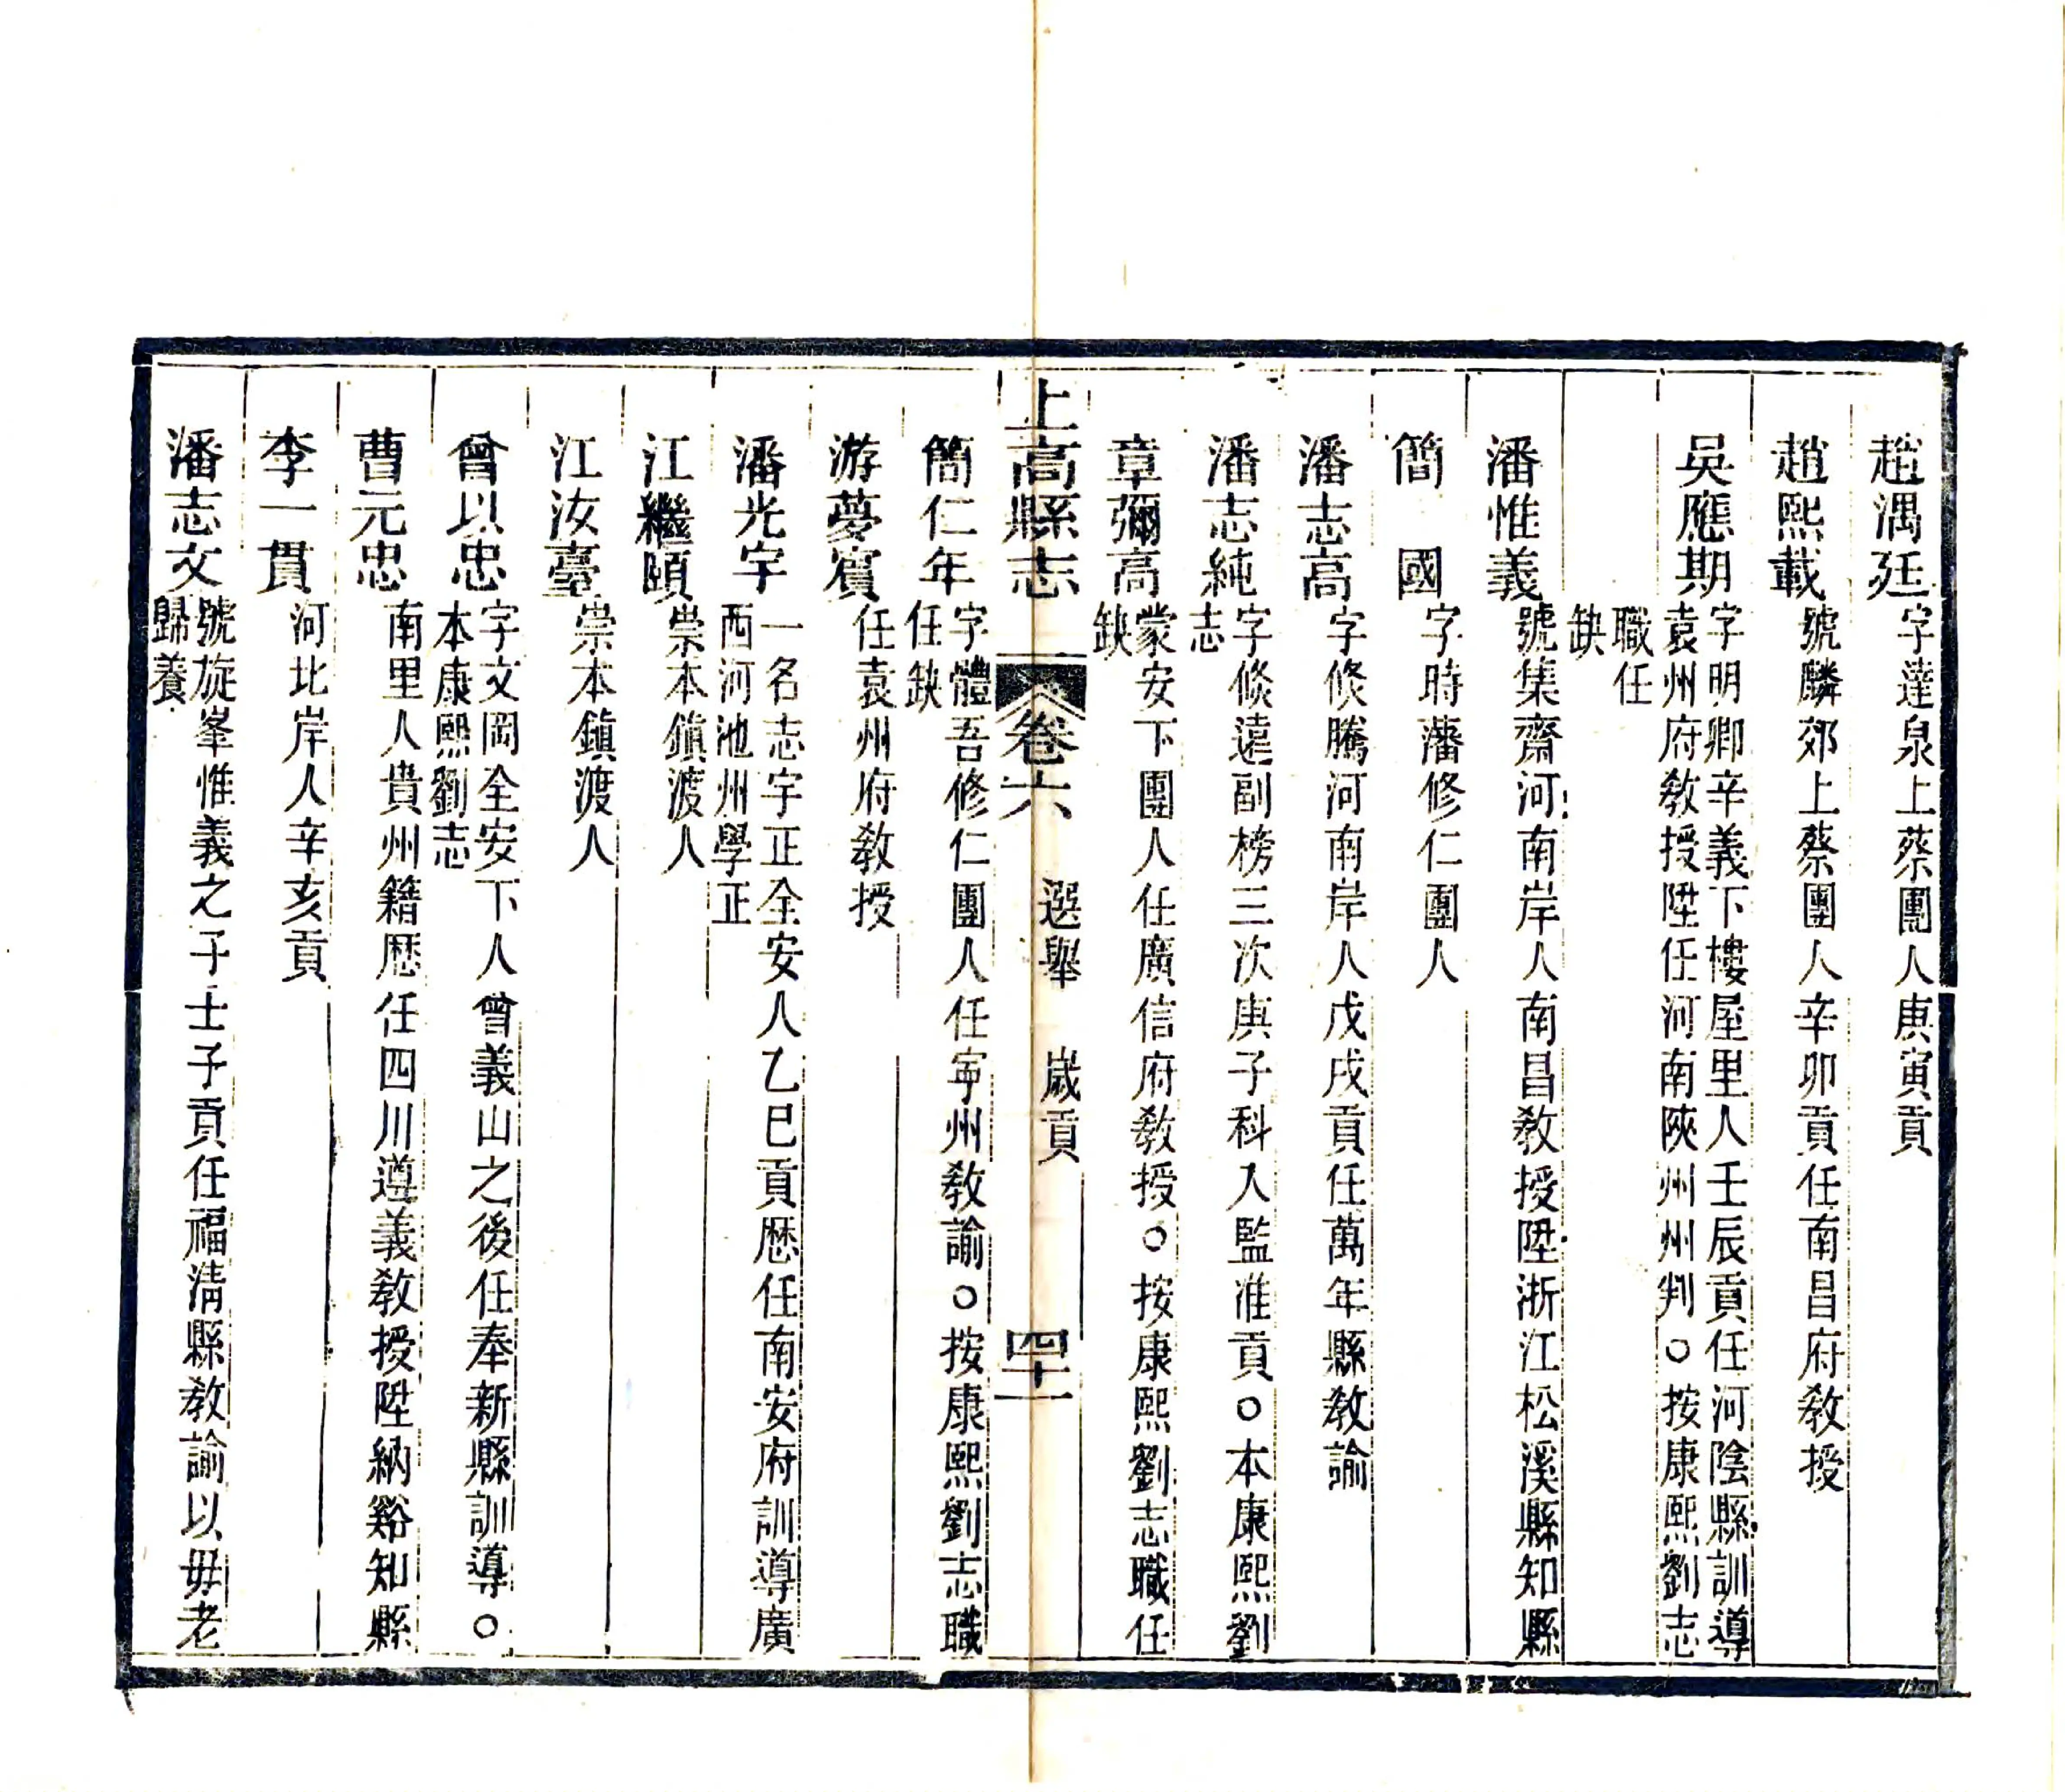 趙漘廷字達泉上蔡團人庚寅貢
趙熙載號麟郊上蔡團人辛卯貢任南昌府教授
吳應期字明卿辛義下樓屋里人壬辰貢任河陰縣訓導
袁州府教授陞任河南陝州州判○按康熙劉志
職任
缺
潘惟義號集齋河南岸人南昌教授陞浙江松溪縣知縣
簡國字時藩修仁團人
潘志高字倐騰河南岸人戊戌貢任萬年縣教諭
潘志純字倐遠副榜三次庚子科入監准貢○本康熙劉
志
章彌高蒙安下團人任廣信府教授○按康熙劉志職任
缺
上高縣志 卷六 選舉 歲貢 四十一
簡仁年字體吾修仁團人任寧州教諭○按康熙劉志職
任缺
游夢賔任袁州府教授
潘光宇一名志宇正全安人乙巳貢歷任南安府訓導廣
西河池州學正
江繼頤崇本鎮渡人
江汝臺崇本鎮渡人
曾以忠字文岡全安下人曾義山之後任奉新縣訓導○
本康熙劉志
曹元忠南里人貴州籍歷任四川遵義教授陞納谿知縣
李一貫河北岸人辛亥貢
潘志文號旋峯惟義之子壬子貢任福清縣教諭以毋老
歸養